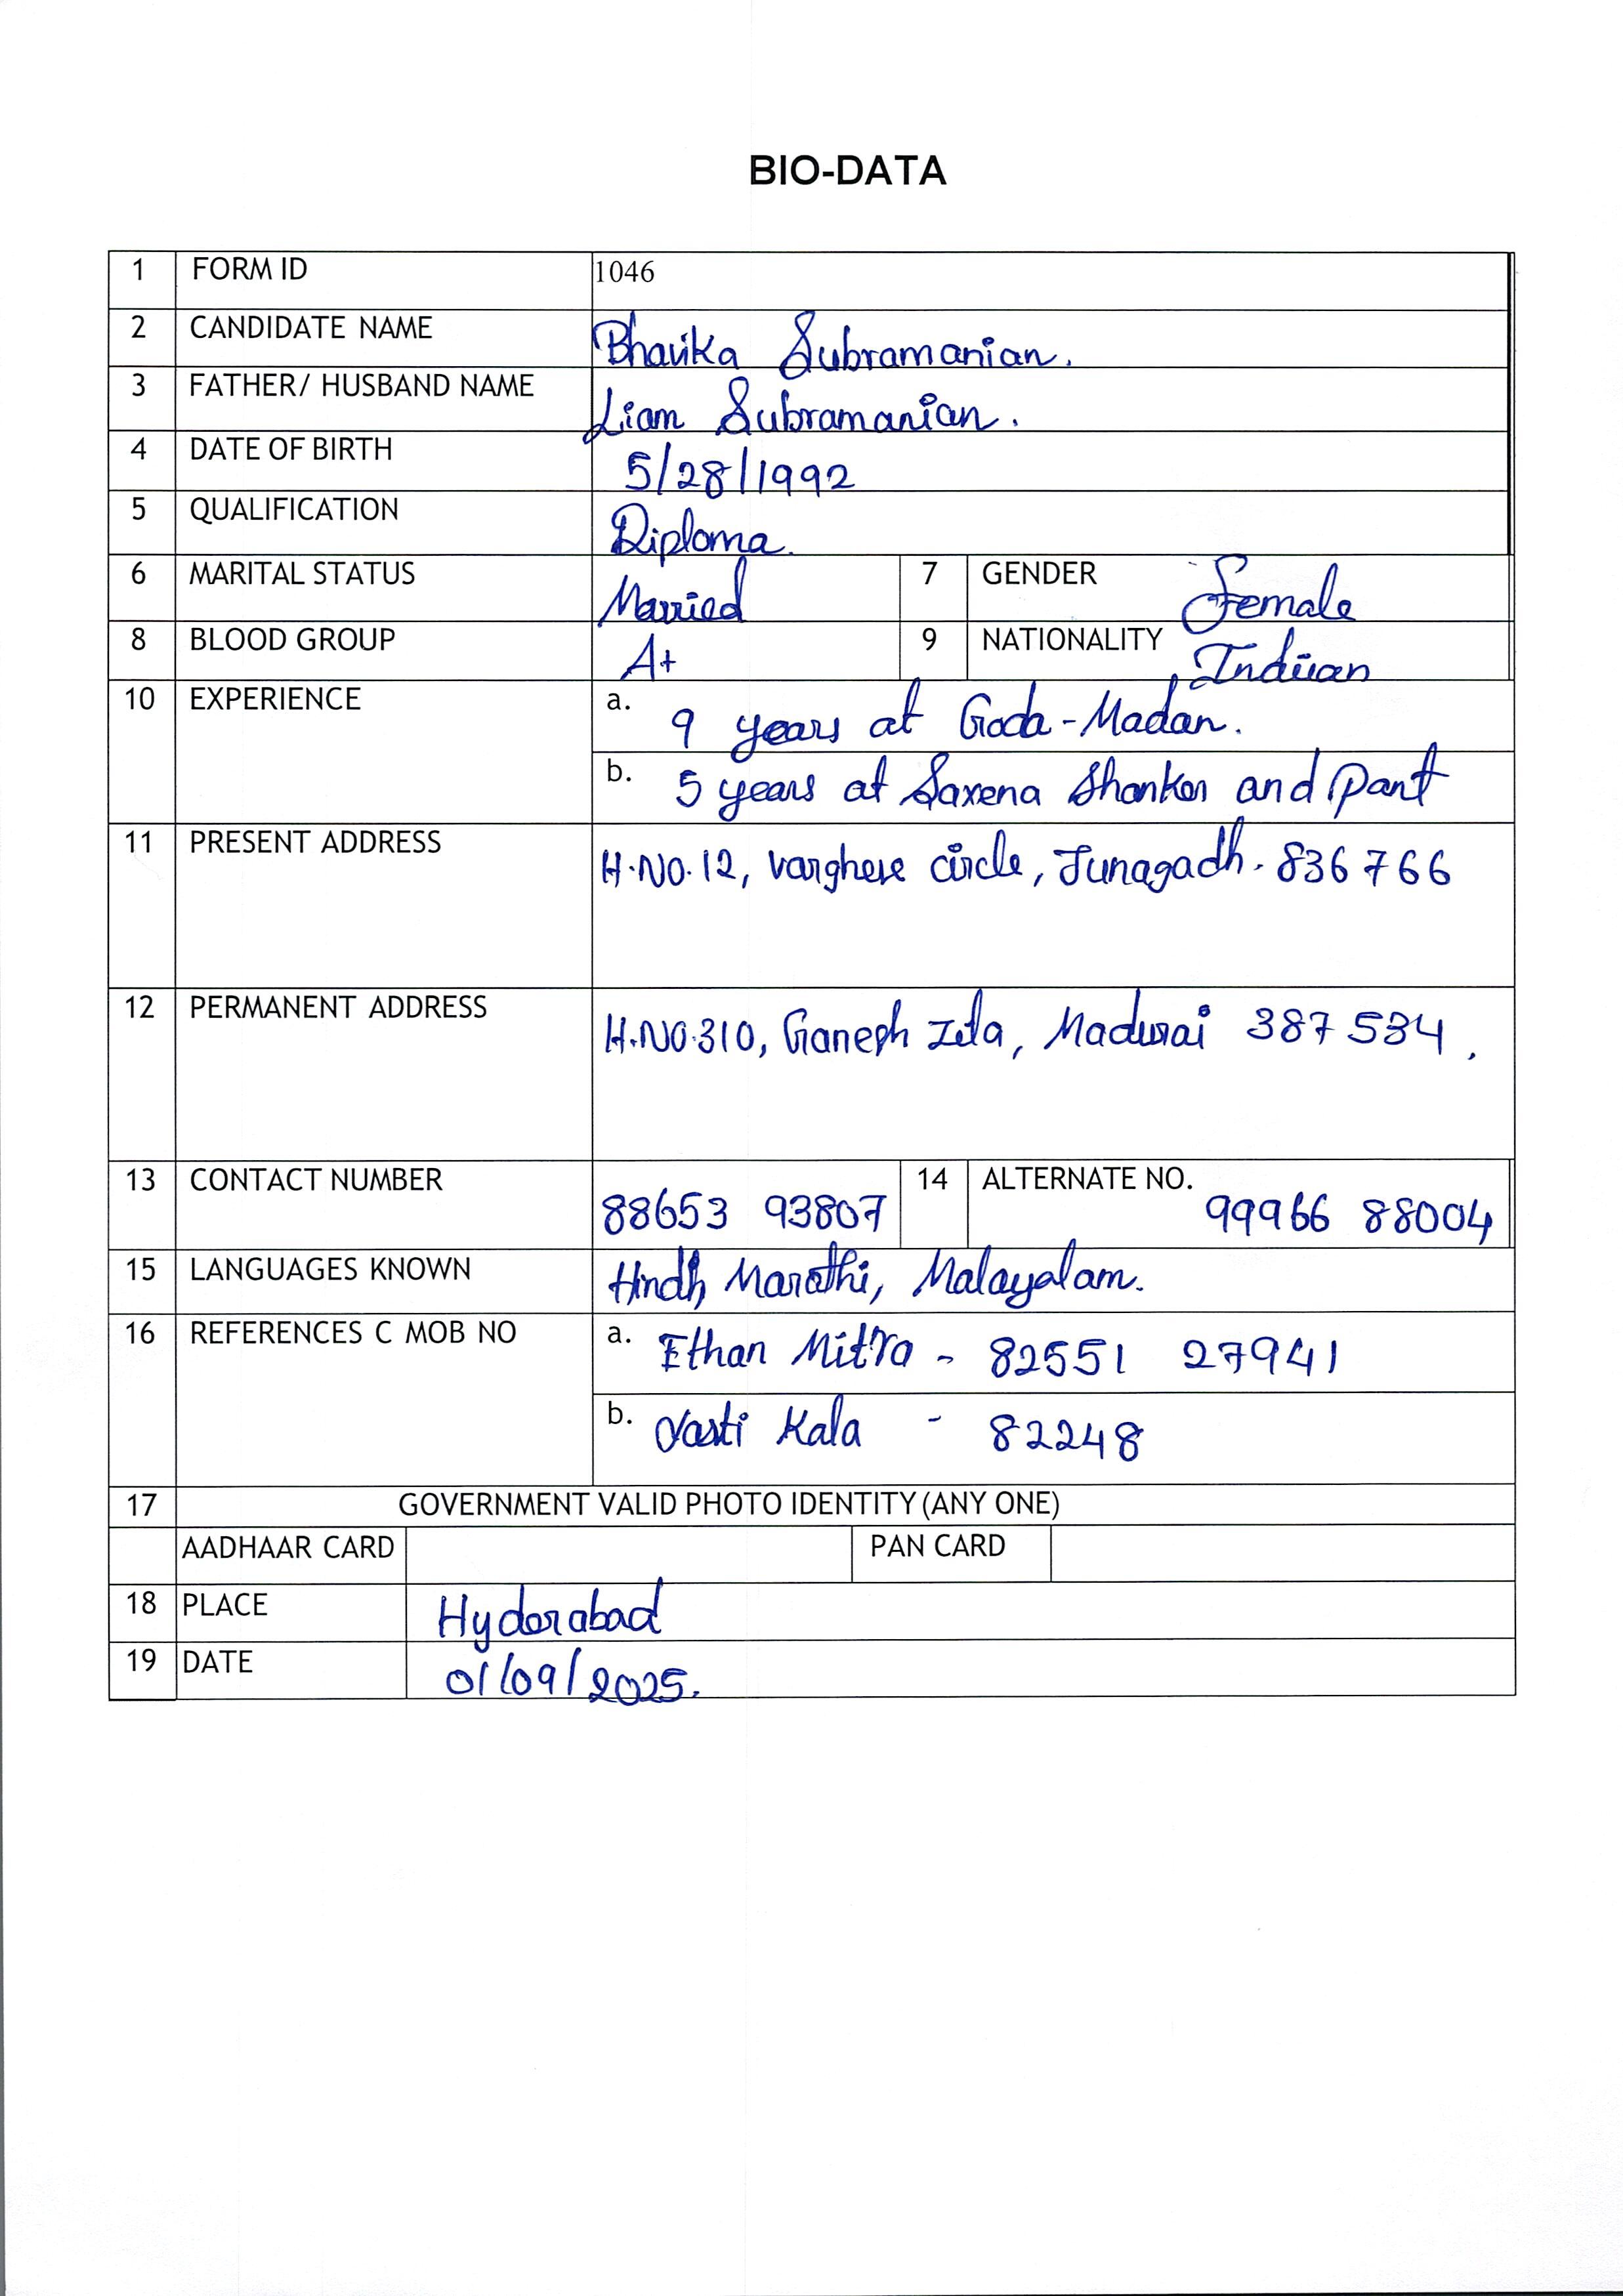 BIO-DATA
1 FORM ID 1046
2 CANDIDATE NAME Bhavika Subramanian.
3 FATHER/ HUSBAND NAME Liam Subramanian.
4 DATE OF BIRTH 5/28/1992
5 QUALIFICATION Diploma.
6 MARITAL STATUS Married 7 GENDER Female
8 BLOOD GROUP A+ 9 NATIONALITY Indian
10 EXPERIENCE a. 9 years at Goda-Madan.
b. 5 years at Saxena Shanker and Pant
11 PRESENT ADDRESS H.NO.12, Varghese Circle, Junagadh. 836766
12 PERMANENT ADDRESS H.NO.310, Ganesh Zila, Madurai 387534.
13 CONTACT NUMBER 88653 93807 14 ALTERNATE NO. 99966 88004
15 LANGUAGES KNOWN Hindi, Marathi, Malayalam.
16 REFERENCES C MOB NO a. Ethan Mitra - 82551 27941
b. Kala - 82248
17 GOVERNMENT VALID PHOTO IDENTITY (ANY ONE)
AADHAAR CARD PAN CARD
18 PLACE Hyderabad
19 DATE 01/09/2025.